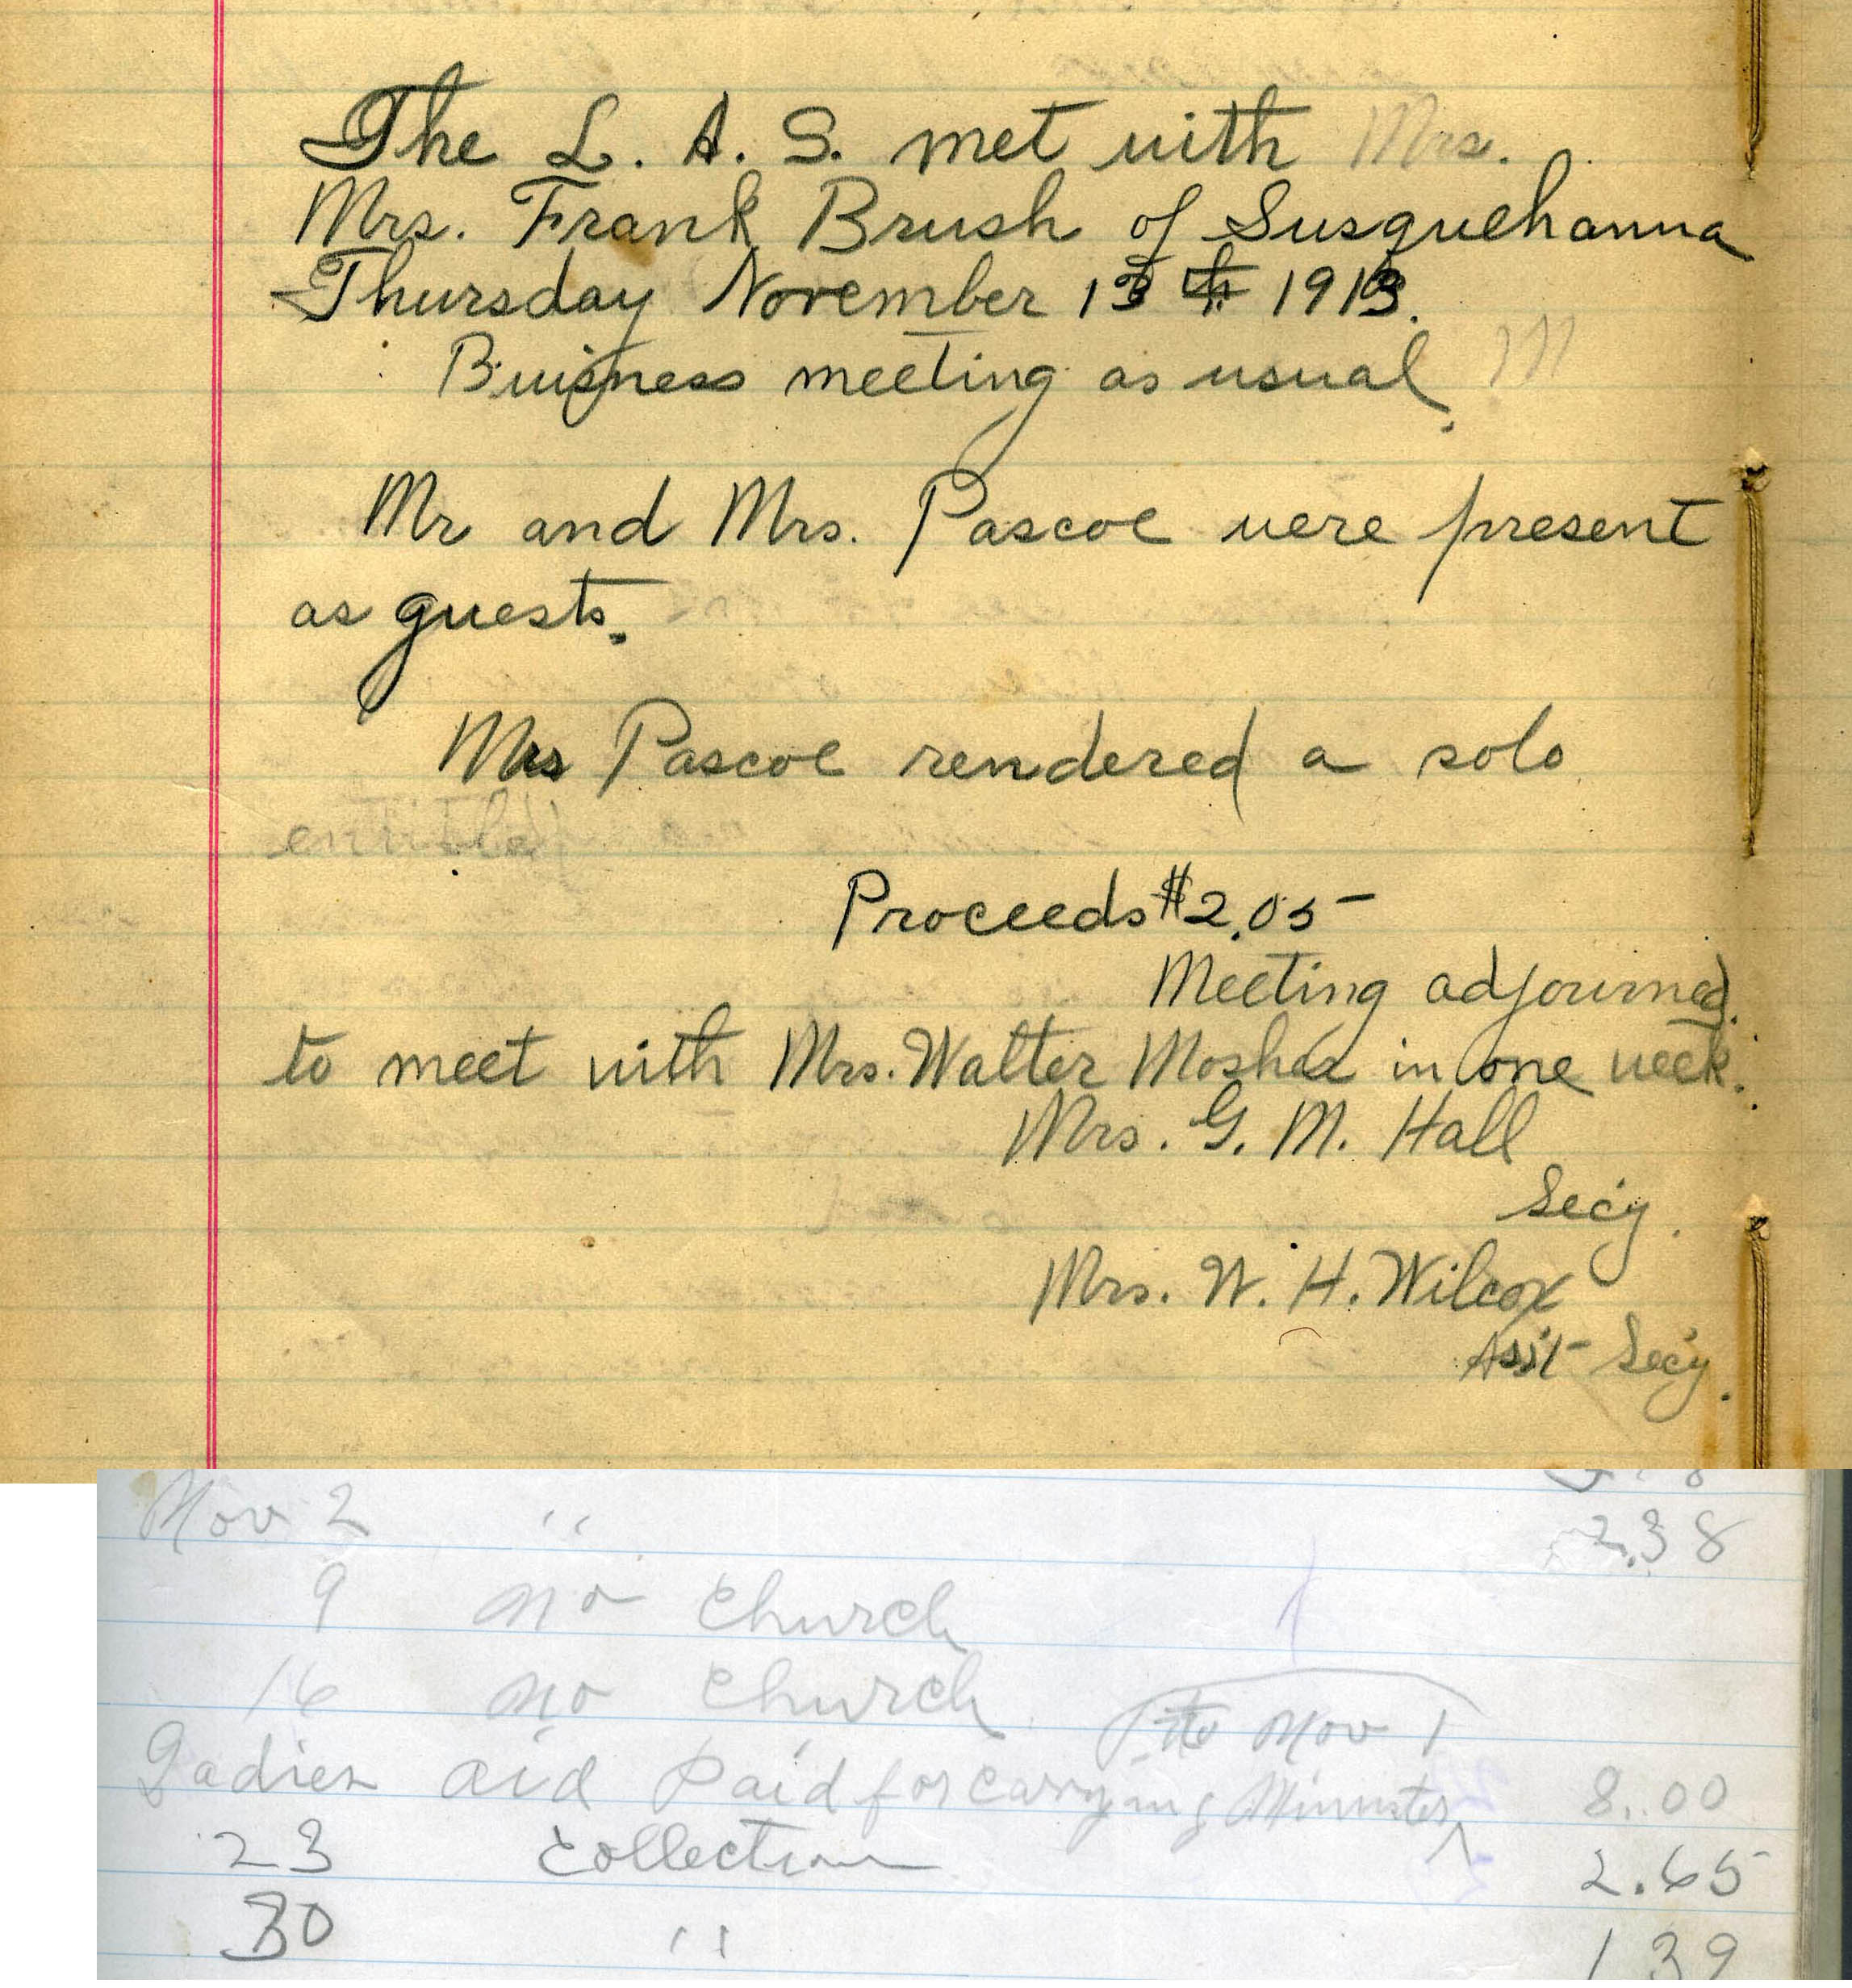 The L. A. S. met with Mrs.
Mrs. Frank Brush of Susquehanna
Thursday November 13 th 1913.
Buisness meeting as usual. M
Mr and Mrs. Pascoe were present
as guests.
Mrs Pascoe rendered a solo
entitled
Proceeds $2.05
Meeting adjourned
to meet with Mrs. Walter Mosher in one week.
Mrs. G. M. Hall
Sec'y.
Mrs. W. H. Wilcox
Ass't Sec'y.
Nov 2 " 2.38
9 no church
16 no church
to Nov 1
Ladies aid Paid for carrying Minister ^ 8.00
23 Collection 2.65
30 " 1 39